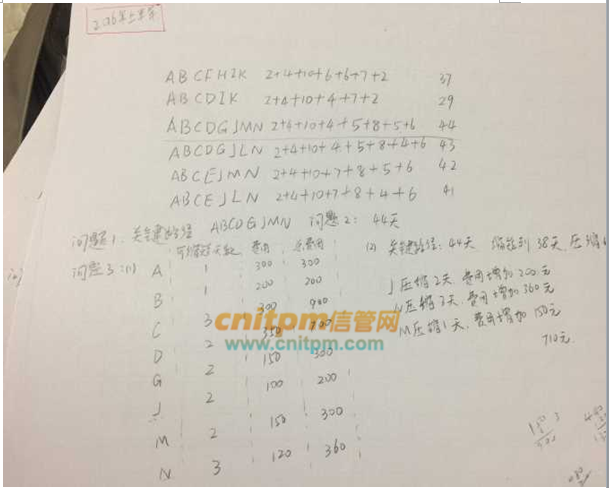 2016年上半年
ABCFHIK 2+4+10+6+6+7+2 37
ABCDIK 2+4+10+4+7+2 29
ABCDGJMN 2+4+10+4+5+8+5+6 44
ABCDGJLN 2+4+10+4+5+8+4+6 43
ABCEJMN 2+4+10+7+8+5+6 42
ABCEJLN 2+4+10+7+8+4+6 41
问题1: 关键路径 ABCDGJMN 问题2: 44天
问题3:(1) 可缩短天数 费用 总费用
A 1 300 300
B 1 200 200
C 3 300 900
D 2 350 700
G 2 150 300
J 2 100 200
M 2 150 300
N 3 120 360
(2) 关键路径: 44天 缩短到38天, 压缩
J压缩2天, 费用增加200元
N压缩3天, 费用增加360元
M压缩1天, 费用增加150元
710元.
cnitpm信管网
www.cnitpm.com